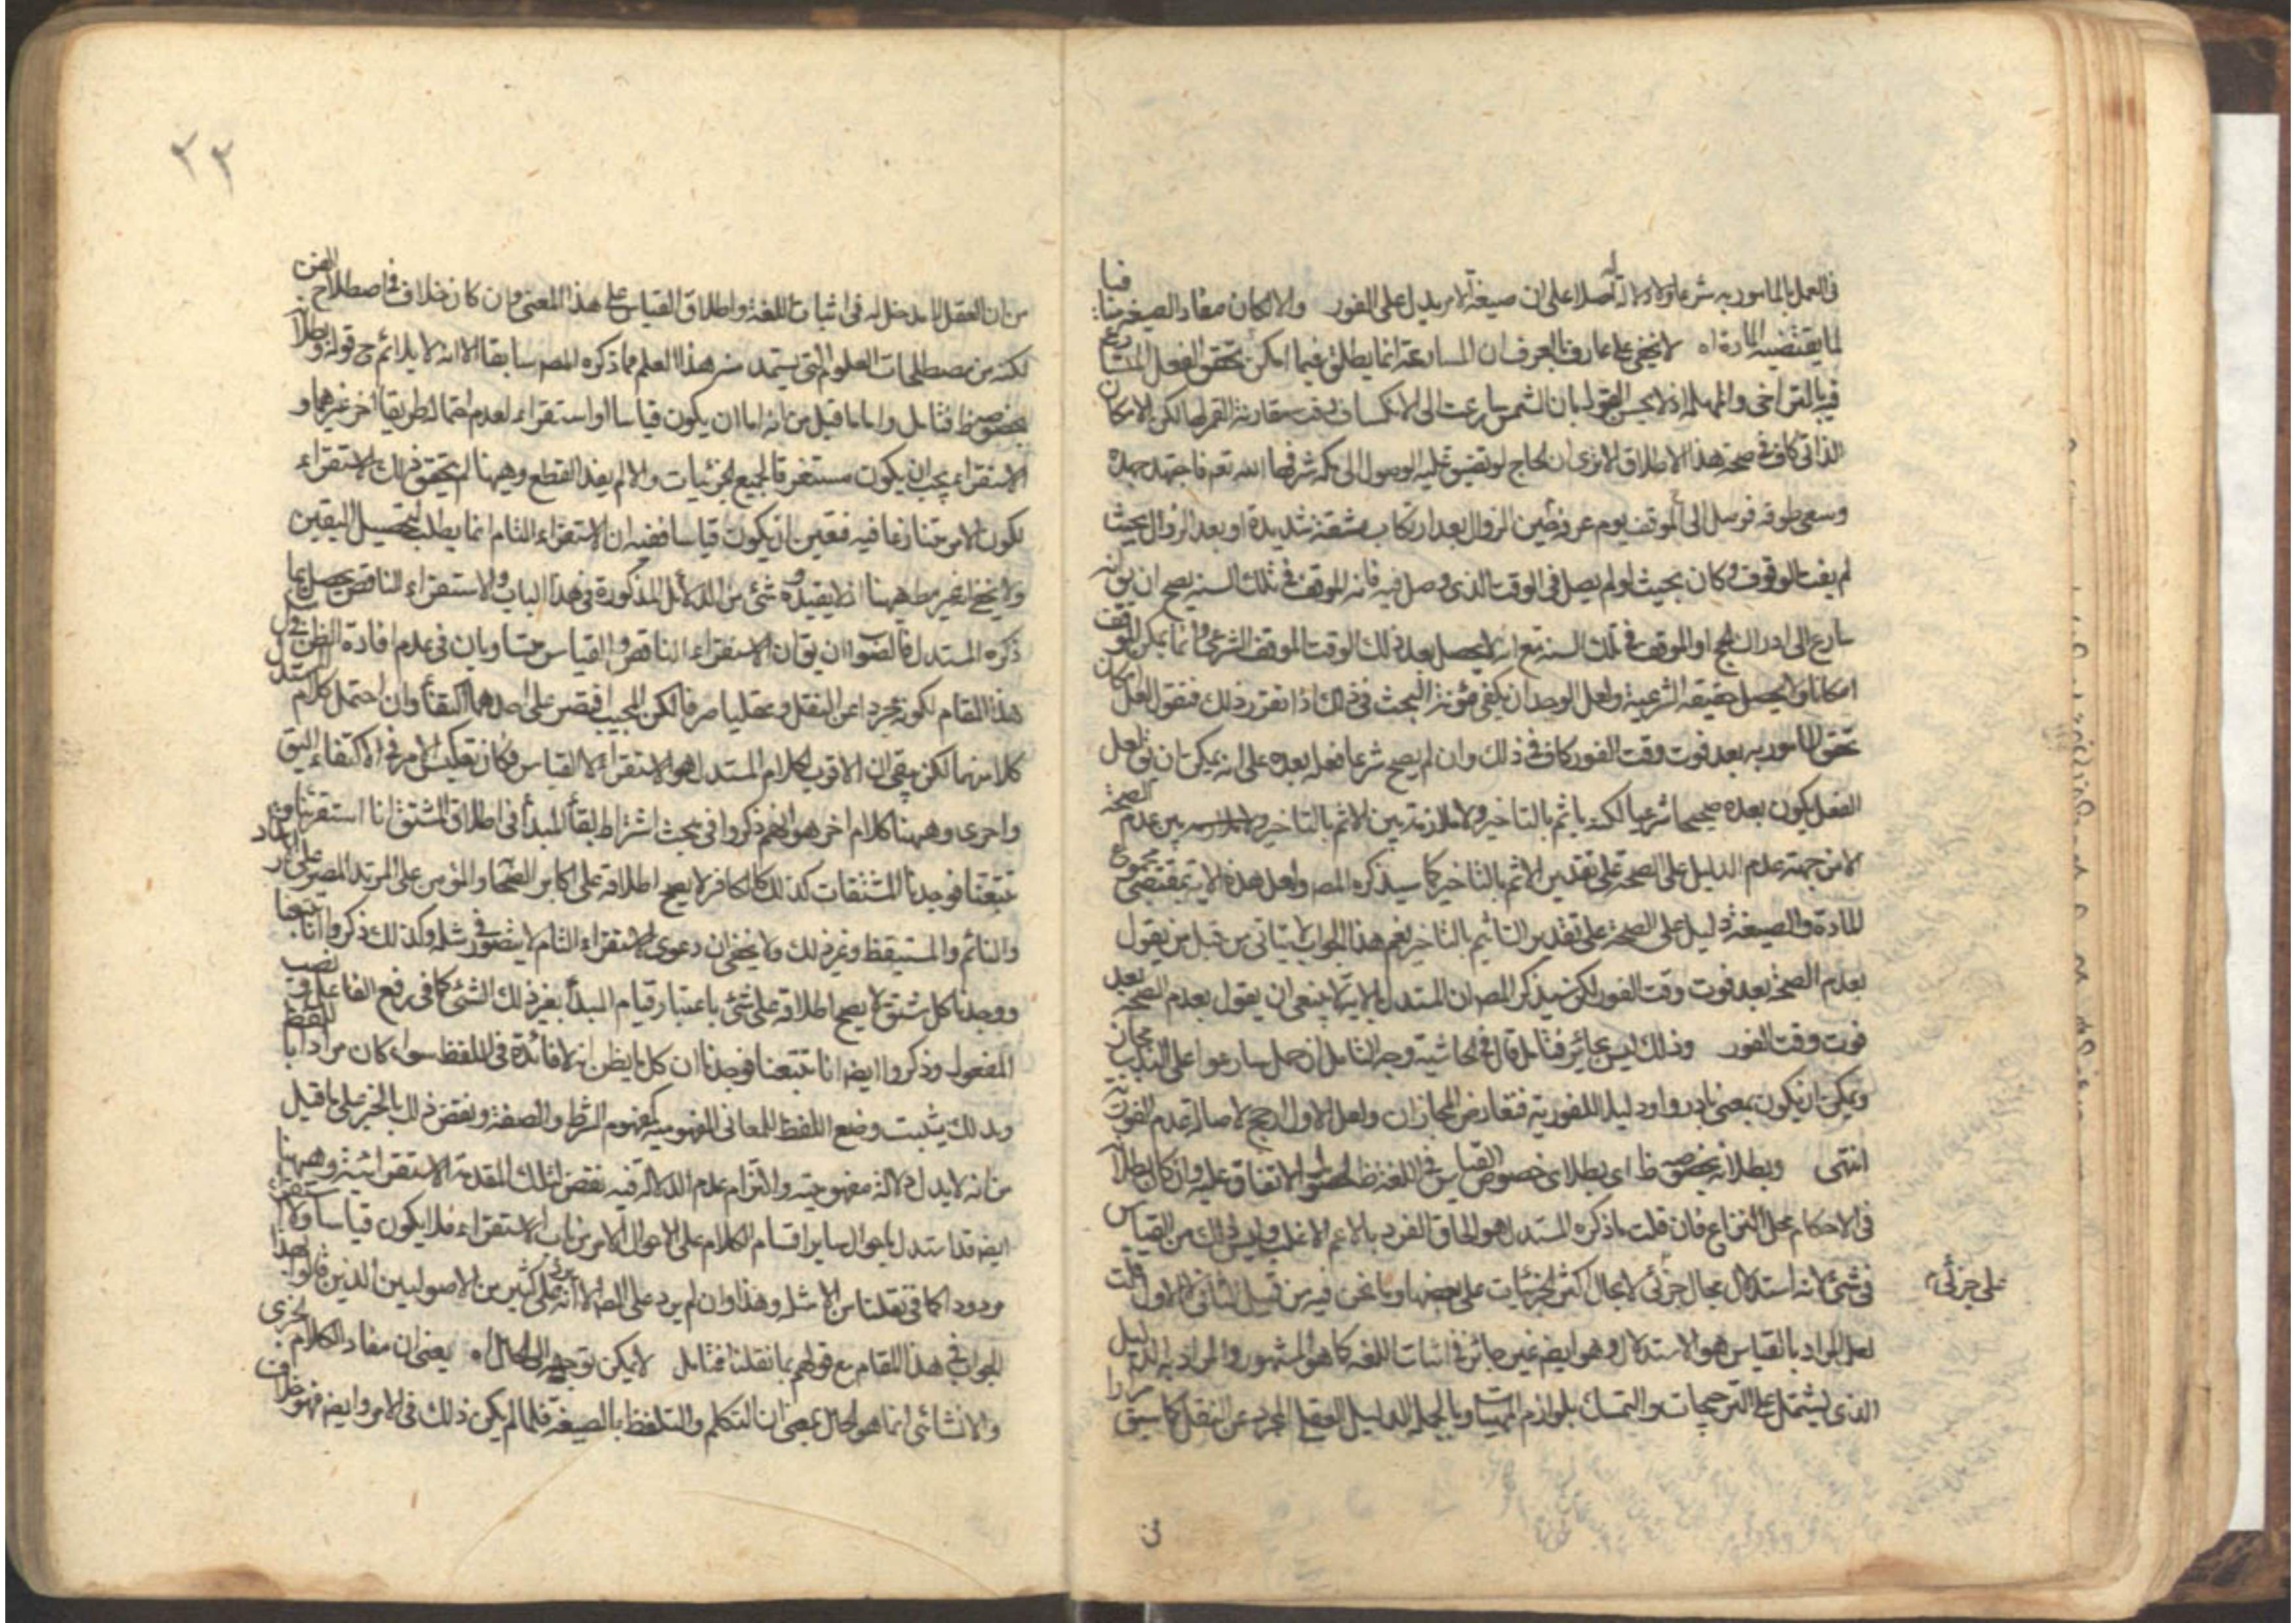 في العمل بالمامور به شرعا ولا دلالة له اصلا على ان صيغة الامر يدل على الفور والا لكان مفاد الصيغة منافيا
لما يقتضيه المادة اه لا يخفى على عارف بالعرف ان المسارعة انما يطلق فيما امكن تحقق الفعل المتسارع
فيه بالتراخي والمهلة اذ لا يحسن القول بان الشمس سارعت الى الانكساف وقت مقارنة القمر لها لكن الامكان
الذاتي كاف في صحة هذا الاطلاق الا ترى ان الحاج لو تضيق عليه الوصول الى مكه شرفها الله تعم فاجتهد جهده
وسعى طوقه فوصل الى الموقف يوم عرفة حين الزوال بعد ارتكاب مشقة شديدة او بعد الزوال بحيث
لم يفت الوقوف وكان بحيث لو لم يصل في الوقت الذي وصل فيه فاته الموقف في تلك السنه يصح ان يق انه
سارع الى ادراك الحج او الموقف في تلك السنه مع انه لا يحصل بعد ذلك الوقت الموقف الشرعي وانما يمكن التوقف
امكانا ولا يحصل حقيقته الشرعية ولعل الوجدان يكفي مؤنة البحث في ذلك اذا تقرر ذلك فنقول لعل امكان
تحقق المامور به بعد فوت وقت الفور كاف في ذلك وان لم يصح شرعا فعله بعده على انه يمكن ان يق لعل
الفعل يكون بعده صحيحا شرعيا لكنه ياثم بالتاخير ولا ملازمة بين الاثم بالتاخير وبين عدم الصحة
الا من جهة عدم الدليل على الصحة على تقدير الاثم بالتاخير كما سيذكره المص ولعل هذه الاية بمقتضى مجموع
المادة والصيغة دليل على الصحة على تقدير التاثيم بالتاخير نعم هذا الجواب لا يتاتى من قبل من يقول
بعدم الصحة بعد فوت وقت الفور لكن سيذكر المص ان المستدل بالاية لا ينبغي ان يقول بعدم الصحة بعد
فوت وقت الفور وذلك ليس بجائز فتامل قال في الحاشية وجه التامل ان حمل سارعوا على الندب مجاز
ويمكن ان يكون بمعنى بادروا ودليلا للفورية فتعارض المجازان ولعل الاول ارجح لاصالة عدم الفورية
انتهى وبطلانه بخصوصه ظ اي بطلان خصوص القياس في اللغة ظ لحصول الاتفاق عليه وان كان بطلانه
في الاحكام محل النزاع فان قلت ما ذكره المستدل هو الحاق الفرد بالاعم الاغلب وليس ذلك من القياس
في شئ لانه استدلال بحال جزئي لا بحال اكثر الجزئيات على بعضها وما نحن فيه من قبيل الثاني لا الاول قلت
على جزئي
لعل المراد بالقياس هو الاستدلال وهو ايضه غير جائز في اثبات اللغه كما هو المشهور والمراد به الدليل
الذي يشتمل على الترجيحات والتمسك بلوازم المهيات وبالجمله الدليل العقلي المجرد عن النقل كما سبق مرارا
من
٢٣
من ان العقل لا مدخل له في اثبات اللغة واطلاق القياس على هذا المعنى وان كان خلاف في اصطلاح الفن
لكنه من مصطلحات العلوم التي يستمد منها هذا العلم مما ذكره المص سابقا الا انه لا يلائم ح قوله وبطلانه
بخصوصه ظ فتامل واما ما قيل من انه اما ان يكون قياسا او استقراء لعدم احتماله طريقا اخر غيرهما و
الاستقراء يجب ان يكون مستغرقا لجميع الجزئيات والا لم يفد القطع وههنا لم يتحقق ذلك الاستقراء
لكون الامر متنازعا فيه فتعين ان يكون قياسا ففيه ان الاستقراء التام انما يطلب لتحصيل اليقين
ولا يخفى انه غير مط ههنا اذ لا يفيده شئ من الدلائل المذكورة في هذا الباب والاستقراء الناقص يحصل بما
ذكره المستدل فالصواب ان يق ان الاستقراء الناقص والقياس متساويان في عدم افادة الظن في
هذا المقام لكونه مجردا عن النقل وعقليا صرفا لكن المجيب اقتصر على احدهما اكتفاء وان احتمل كلام المستدل
كلا منهما لكن يبقى ان الاقرب بكلام المستدل هو الاستقراء لا القياس فكان تعكيس الامر في الاكتفاء اليق
واحرى وههنا كلام اخر هو انهم ذكروا في بحث اشتراط بقاء المبدأ في اطلاق المشتق انا استقرئنا و
تتبعنا فوجدنا المشتقات كذلك كالكافر لا يصح اطلاقه على اكابر الصحابة والمؤمن على المرتد المصر على ارتداد
والنائم والمستيقظ وغير ذلك ولا يخفى ان دعوى الاستقراء التام لا يتصور في مثله وكذلك ذكروا انا تتبعنا
ووجدنا كل مشتق لا يصح اطلاقه على شئ باعتبار قيام المبدأ بغير ذلك الشئ كما في رفع الفاعل ونصب
المفعول وذكروا ايضه انا تتبعنا فوجدنا ان كل ما يظن انه لا فائدة في اللفظ سواه كان مرادا باللفظ
وبذلك يثبت وضع اللفظ للمعاني المفهومية كمفهوم الشرط والصفة ونقض ذلك بالخبر على ما قيل
من انه لا يدل دلالة مفهومية والتزام عدم الدلالة فيه نقض لتلك المقدمة الاستقرائية وههنا
ايضه قد استدل باحوال ساير اقسام الكلام على الاحوال الامر من باب الاستقراء فلا يكون قياسا ولا استقراء
مردودا كما في نقلنا من الامثلة وهذا وان لم يرد على المص الا انه يرد على كثير من الاصوليين الذين قالوا بهذا
الجواب في هذا المقام مع قولهم بما نقلنا فتامل لا يمكن توجيهه الى الحال اه يعني ان مفاد الكلام الخبري
والانشائي انما هو الحال بمعنى ان التكلم والتلفظ بالصيغة فلما لم يكن ذلك في الامر وايضه فهو خلاف